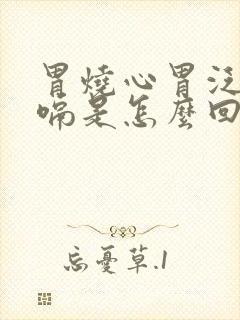 胃燒心胃泛
嗝是怎麼回
忘憂草.1